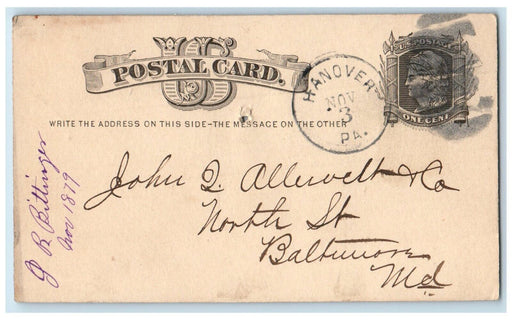 US
POSTAL CARD.
WRITE THE ADDRESS ON THIS SIDE–THE MESSAGE ON THE OTHER
HANOVER
NOV
3
PA.
U.S. POSTAGE
ONE CENT
John Q. & Co
North St
Baltimore
Md
Bittinger
Nov 1879